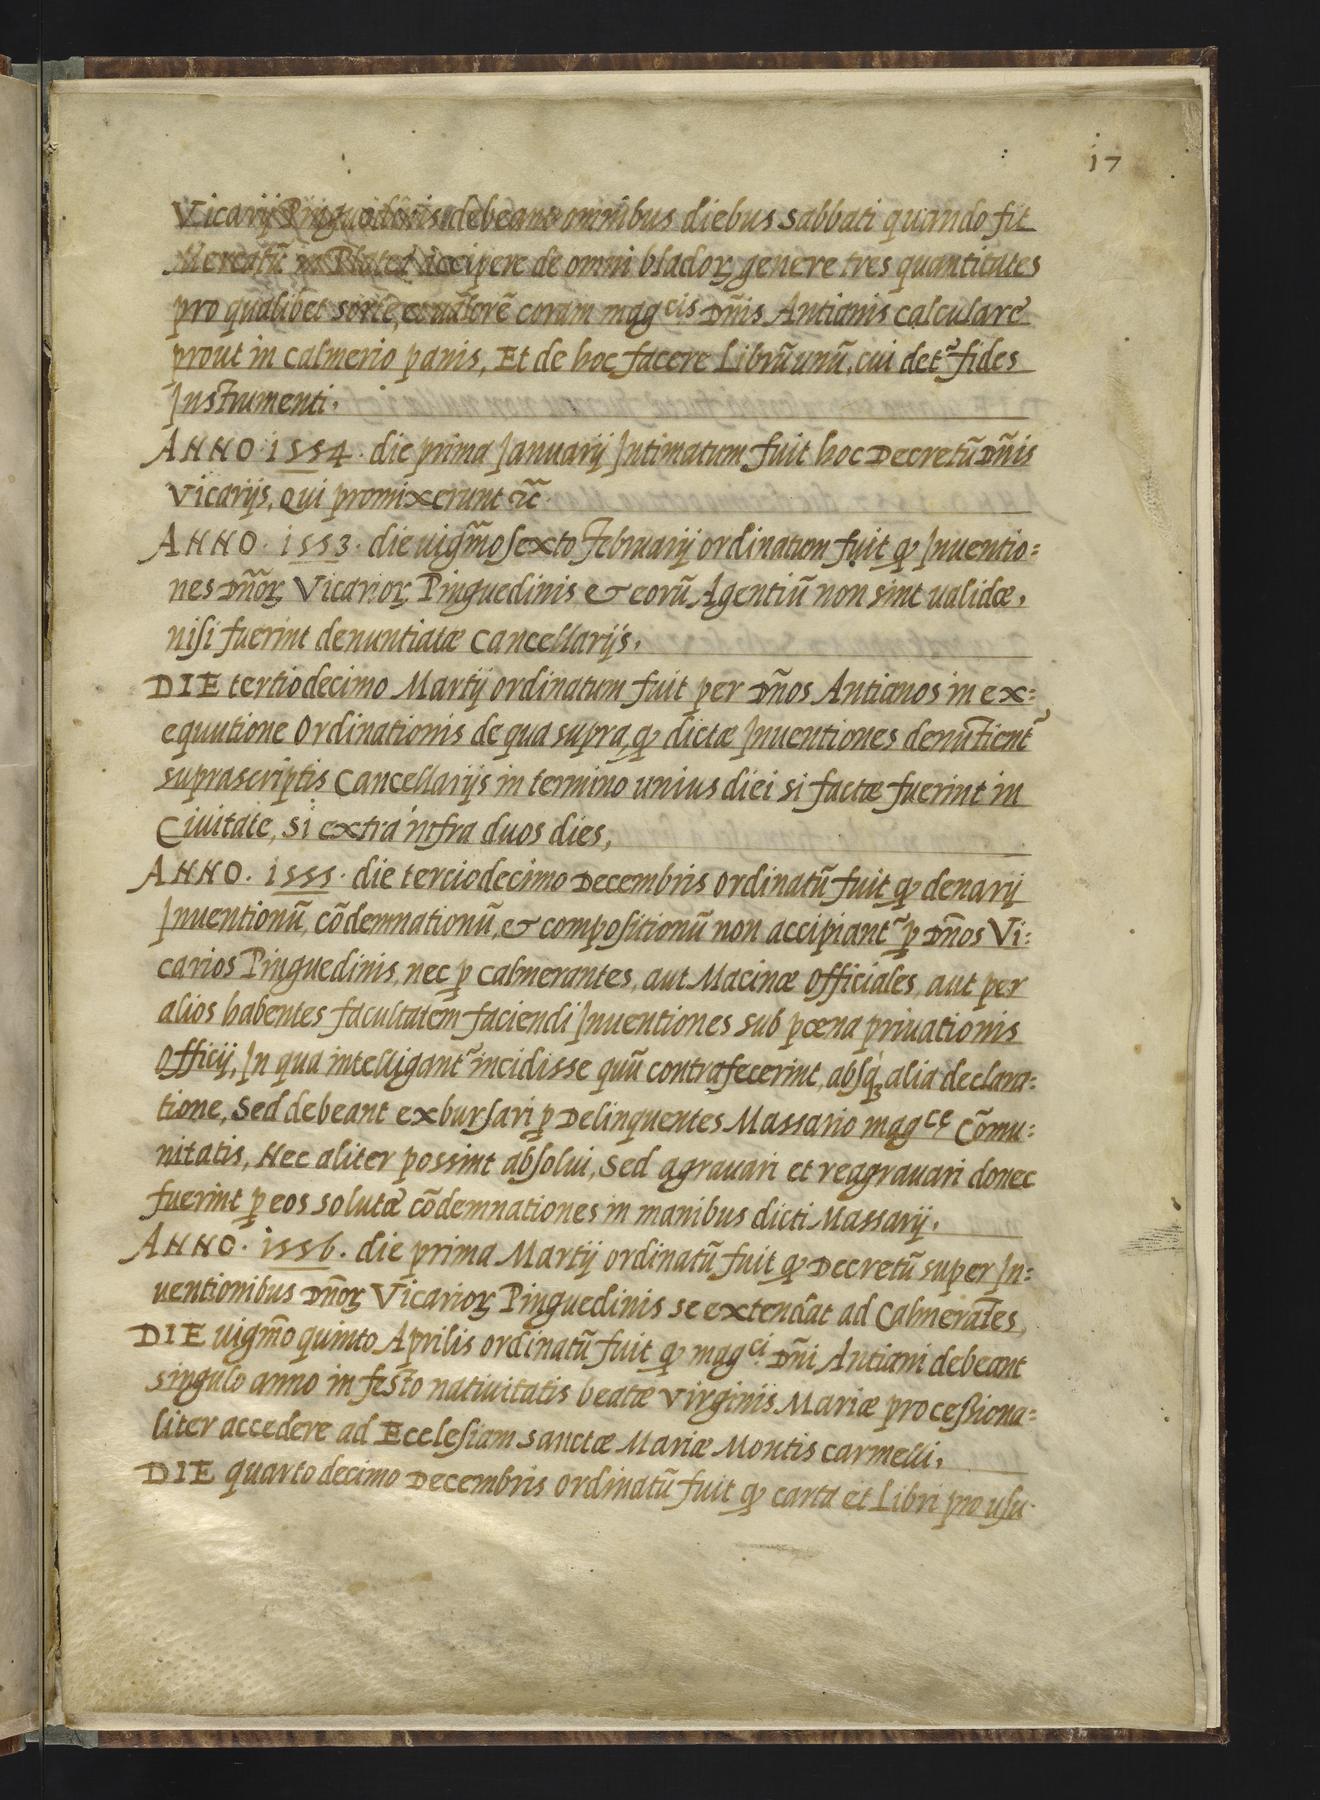 17
Vicarij Pinguedinis debeant omnibus diebus sabbati quando fit
Mercatũ in Platea accipere de omni bladoꝝ genere tres quantitates
pro qualibet sorte, et valorẽ coram magcis Dñis Antianis calculare
prout in calmerio panis, Et de hoc facere Librũ unũ, cui det᷑ fides
Instrumenti.
ANNO 1554. die prima Januarij Intimatum fuit hoc Decretũ Dñis
Vicarijs, Qui promixerunt &c̃.
ANNO. 1553. die uigm̃o sexto Februarij ordinatum fuit ꝙ Inuentio=
nes Dñoꝝ Vicarioꝝ Pinguedinis & eorũ Agentiũ non sint ualidæ,
nisi fuerint denuntiatæ Cancellarijs.
DIE tertiodecimo Martij ordinatum fuit per Dños Antianos in ex=
equutione Ordinationis de qua supra, ꝙ dictæ Inuentiones denũtient᷑
suprascriptis Cancellarijs in termino unius diei si factæ fuerint in
Ciuitate, Si extra infra duos dies,
ANNO. 1555. die terciodecimo Decembris ordinatũ fuit ꝙ denarij
Inuentionũ, cõdemnationũ, & compositionũ non accipiant᷑ ꝑ Dños Vi=
carios Pinguedinis, nec ꝑ calmerantes, aut Macinæ Officiales, aut per
alios habentes facultatem faciendi Inuentiones sub pœna priuationis
Officij, In qua intelligant᷑ incidisse quũ contrafecerint, absq; alia declara=
tione, Sed debeant exbursari ꝑ Delinquentes Massario magce Cõmu=
nitatis, Nec aliter possint absolui, Sed agrauari et reagrauari donec
fuerint ꝑ eos solutæ cõdemnationes in manibus dicti Massarij.
ANNO. 1556. die prima Martij ordinatũ fuit ꝙ Decretũ super In=
uentionibus Dñoꝝ Vicarioꝝ Pinguedinis se extendat ad Calmerãtes,
DIE uigm̃o quinto Aprilis ordinatũ fuit ꝙ magci Dñi Antiani debeant
singulo anno in festo natiuitatis beatæ Virginis Mariæ processiona=
liter accedere ad Ecclesiam sanctæ Mariæ Montis carmelli.
DIE quarto decimo Decembris ordinatũ fuit ꝙ carta et Libri pro usu